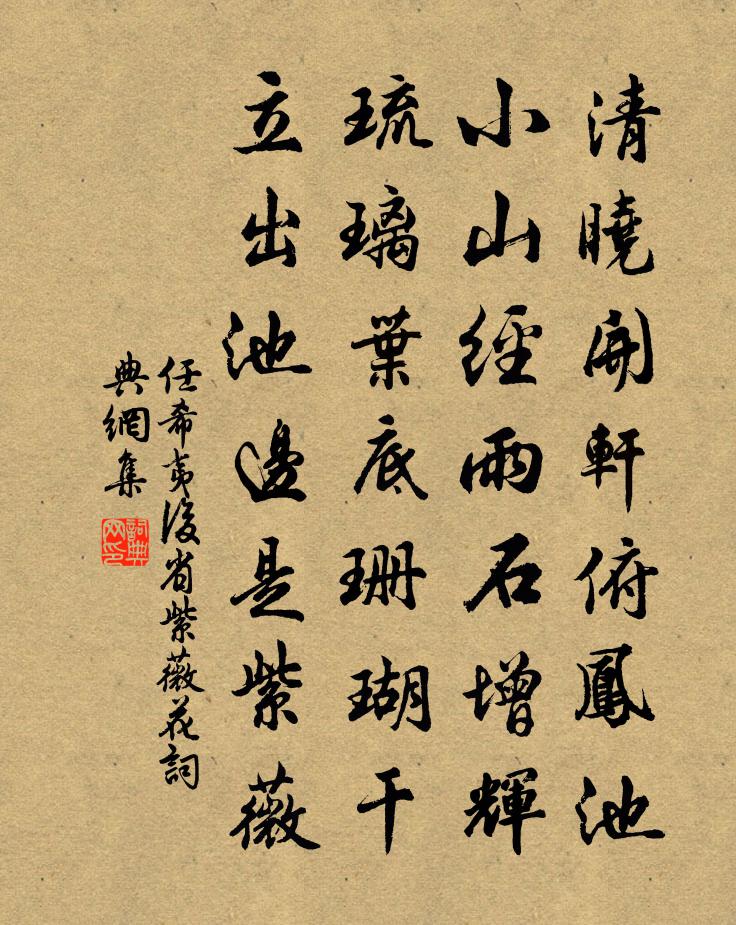 清曉開軒俯鳳池
小山經雨石增輝
琉璃葉底珊瑚干
立出池邊是紫薇
任希夷後省紫薇花詞
典網集
詞典
网印